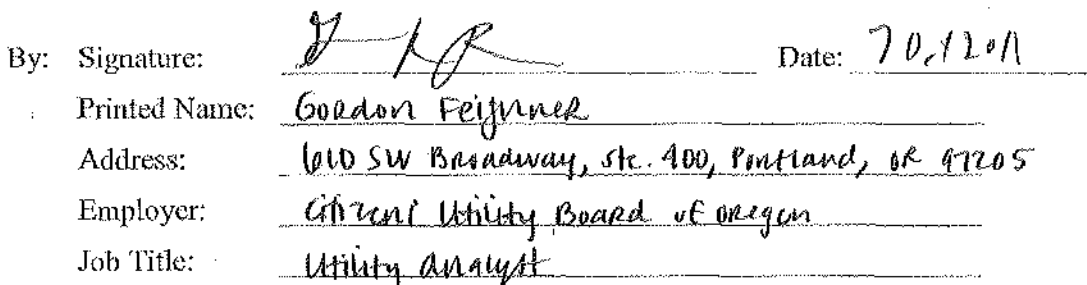 By: Signature: Date:
Printed Name: Gordon Feighner
Address: 610 SW Broadway, ste. 400, Portland, OR 97205
Employer: Citizens' Utility Board of Oregon
Job Title: Utility Analyst